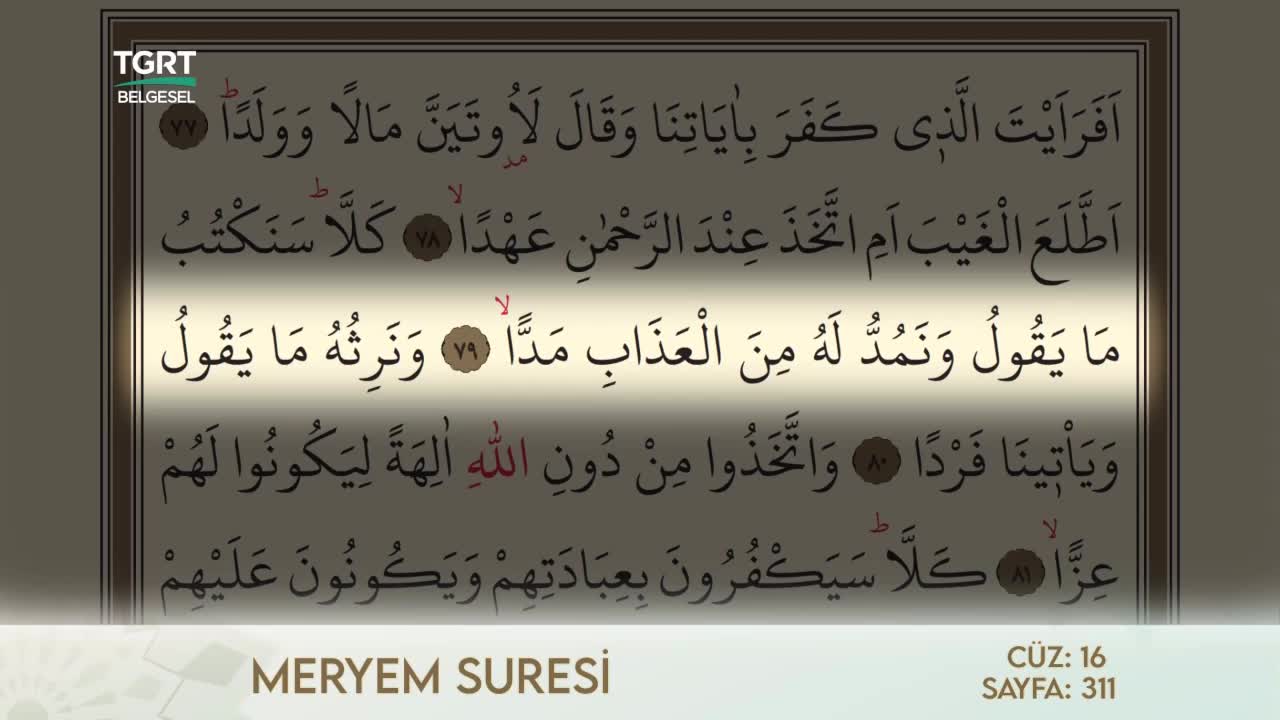 TGRT
BELGESEL
اَفَرَاَيْتَ الَّذ۪ي كَفَرَ بِاٰيَاتِنَا وَقَالَ لَاُو۫تَيَنَّ مَالًا وَوَلَدًاۜ ﴿٧٧﴾
مد
اَطَّلَعَ الْغَيْبَ اَمِ اتَّخَذَ عِنْدَ الرَّحْمٰنِ عَهْدًاۙ ﴿٧٨﴾ كَلَّاۜ سَنَكْتُبُ
مَا يَقُولُ وَنَمُدُّ لَهُ مِنَ الْعَذَابِ مَدًّاۙ ﴿٧٩﴾ وَنَرِثُهُ مَا يَقُولُ
وَيَأْت۪ينَا فَرْدًا ﴿٨٠﴾ وَاتَّخَذُوا مِنْ دُونِ اللّٰهِ اٰلِهَةً لِيَكُونُوا لَهُمْ
عِزًّاۙ ﴿٨١﴾ كَلَّاۜ سَيَكْفُرُونَ بِعِبَادَتِهِمْ وَيَكُونُونَ عَلَيْهِمْ
MERYEM SURESİ
CÜZ: 16
SAYFA: 311